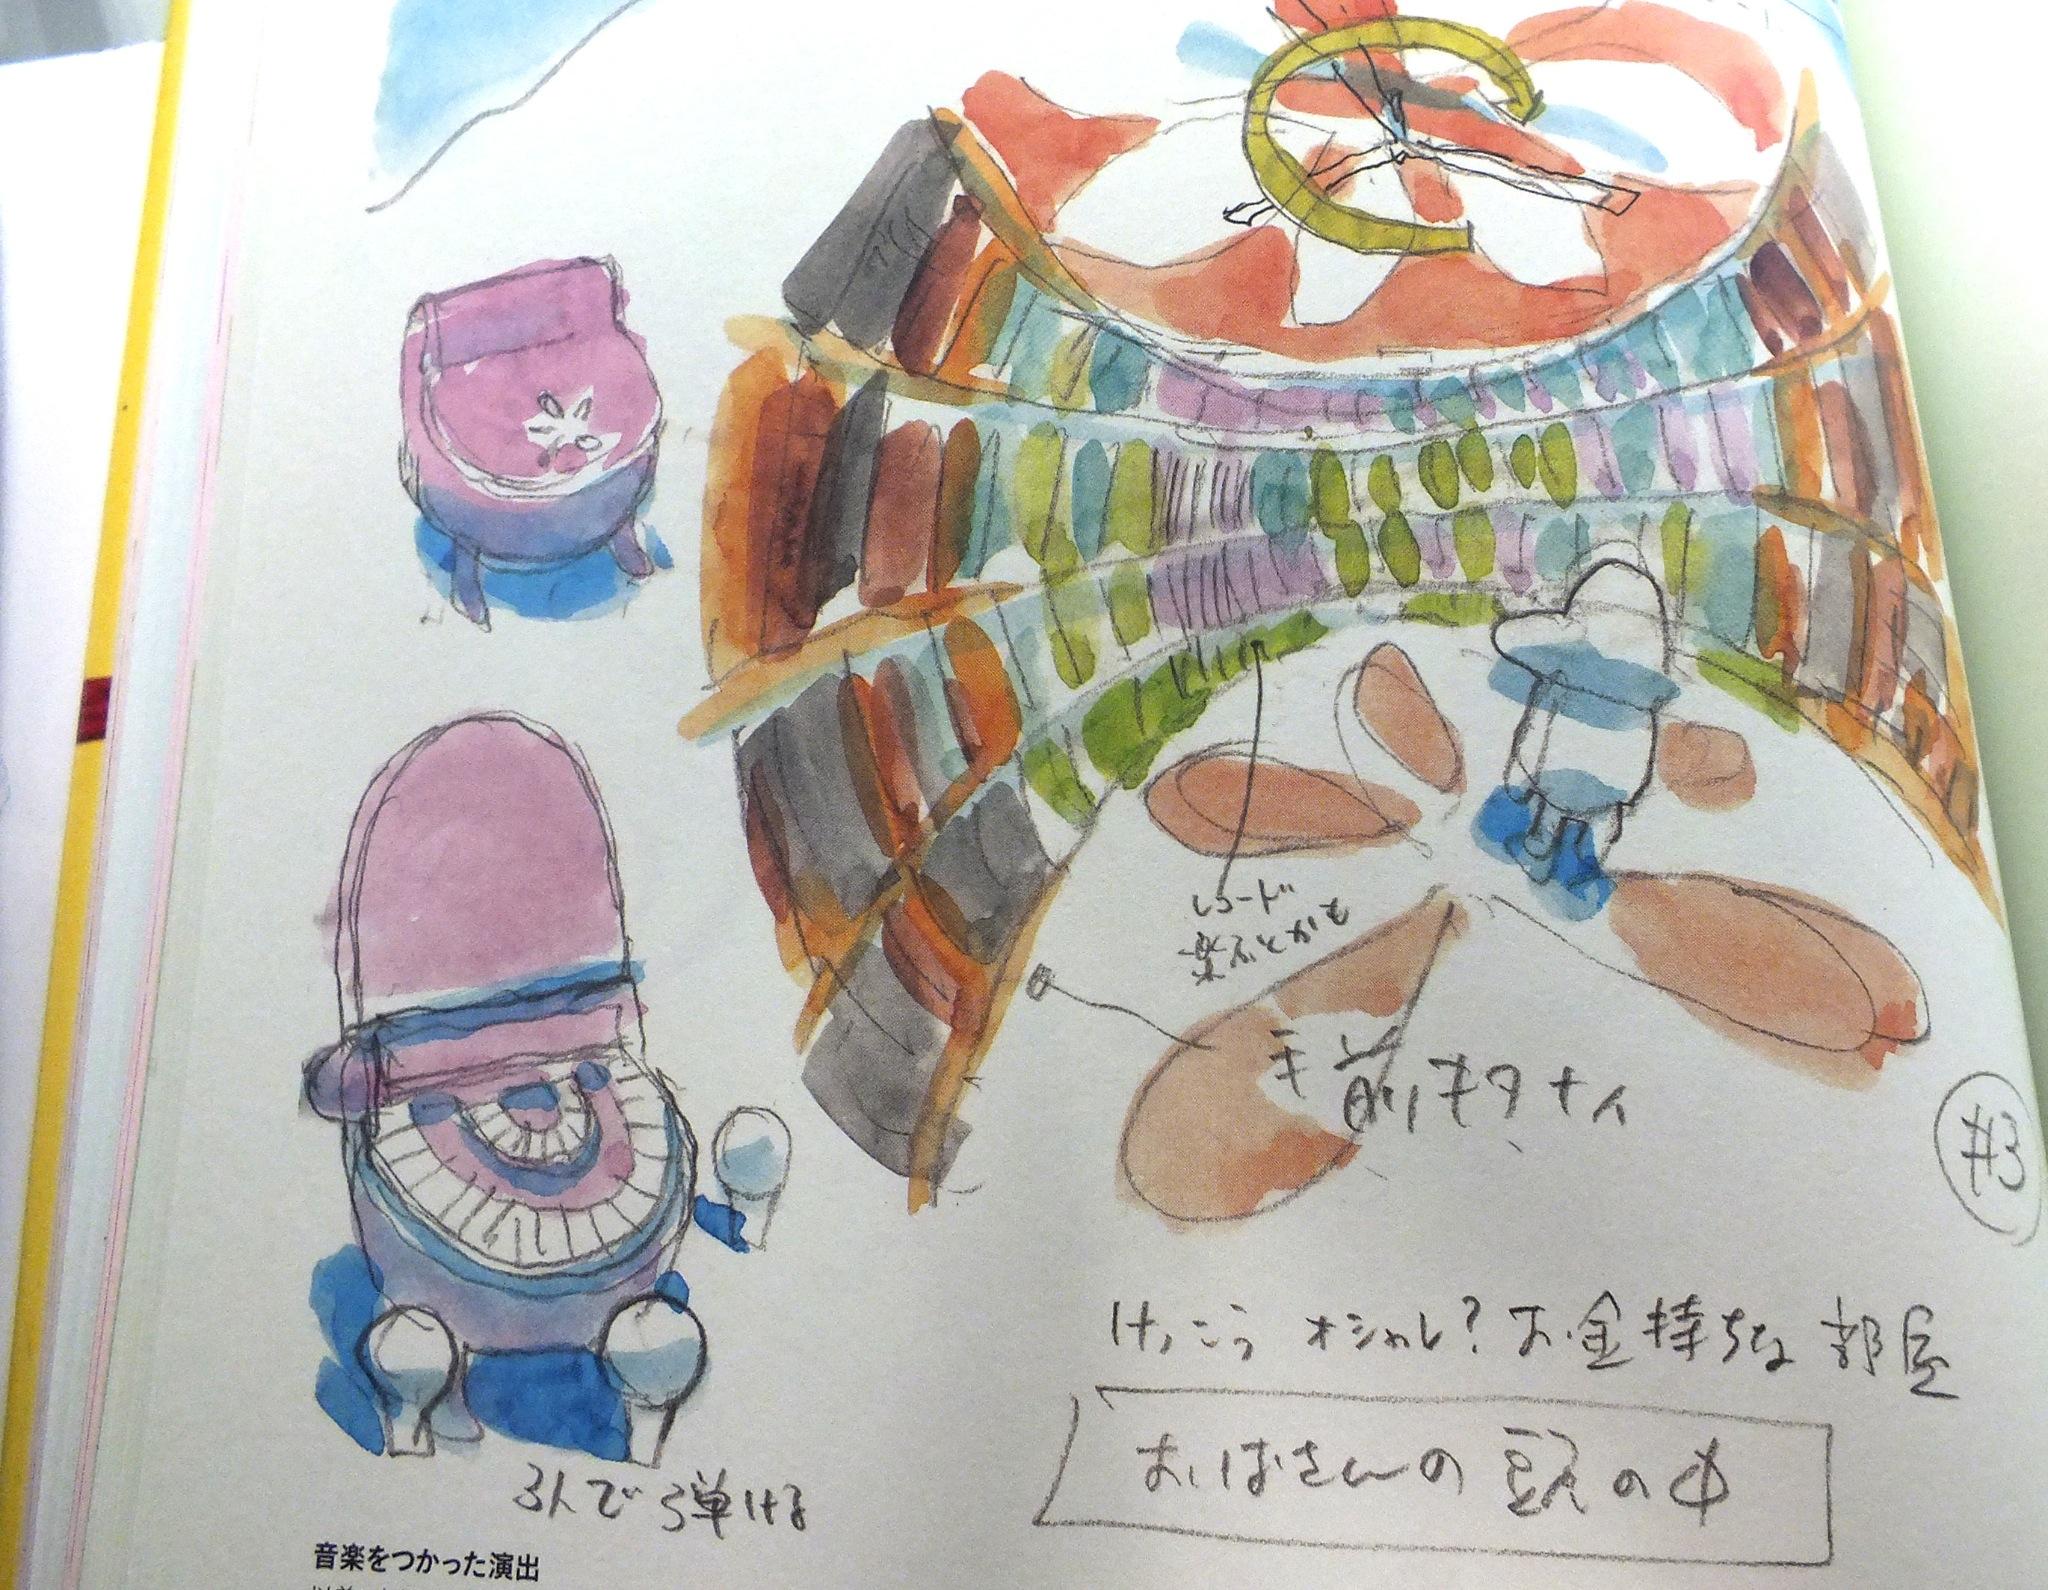 レコード
楽ふとかも
手前キタナイ
#3
けっこう オシャレ? お金持ちな 部屋
おばさんの 頭の中
3人で 弾ける
音楽をつかった演出